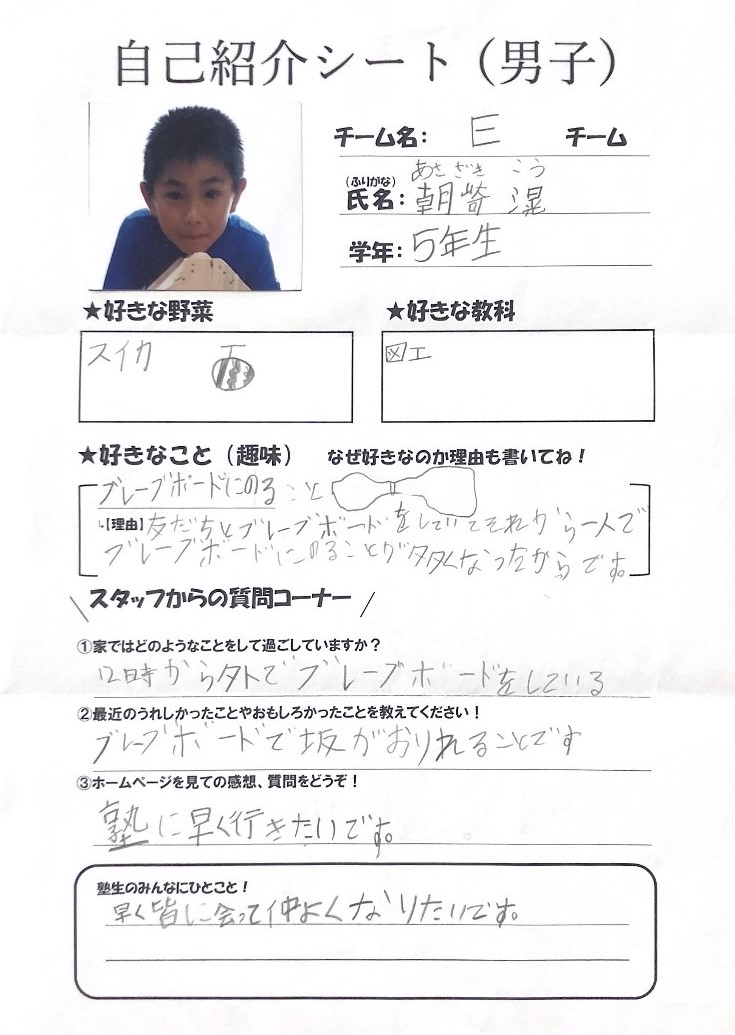 自己紹介シート（男子）
チーム名： E チーム
あさ ざき こう
(ふりがな)
氏名：朝崎 滉
学年：5年生
★好きな野菜
★好きな教科
スイカ
図工
★好きなこと（趣味） なぜ好きなのか理由も書いてね！
ブレーブボードにのること
↳【理由】友だちとブレーブボードをしていてそれから一人で
ブレーブボードにのることが多くなったからです。
スタッフからの質問コーナー
①家ではどのようなことをして過ごしていますか？
12時から外でブレーブボードをしている
②最近のうれしかったことやおもしろかったことを教えてください！
ブレーブボードで坂がおりれることです
③ホームページを見ての感想、質問をどうぞ！
塾に早く行きたいです。
塾生のみんなにひとこと！
早く皆に会って仲よくなりたいです。